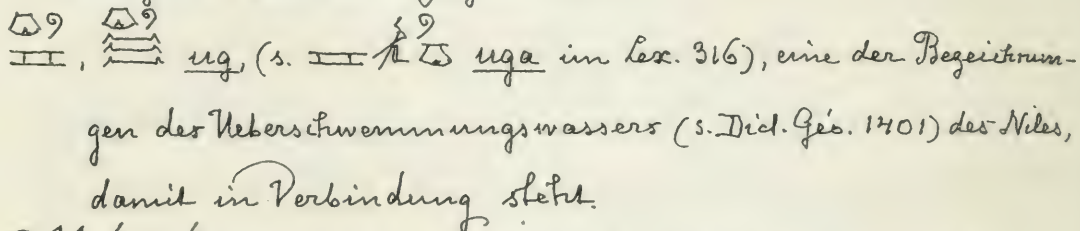 ug, (s. uga im Lex. 316), eine der Bezeichnun-
gen des Ueberschwemmungswassers (s. Dict. Géo. 1401) des Niles,
damit in Verbindung steht.